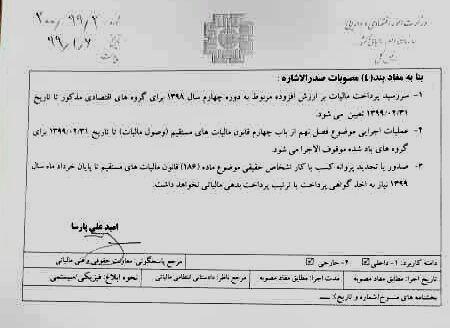 وزارت امور اقتصادی و دارایی
سازمان امور مالیاتی کشور
شماره ۲۰۰/۹۹/۲
تاریخ ۹۹/۱/۶
پیوست
بنا به مفاد بند(٤) مصوبات صدرالاشاره :
۱- سررسید پرداخت مالیات بر ارزش افزوده مربوط به دوره چهارم سال ۱۳۹۸ برای گروه های اقتصادی مذکور تا تاریخ
۱۳۹۹/۰۲/۳۱ تعیین می شود.
۲- عملیات اجرایی موضوع فصل نهم از باب چهارم قانون مالیات های مستقیم (وصول مالیات) تا تاریخ ۱۳۹۹/۰۲/۳۱ برای
گروه های یاد شده موقوف الاجرا می شود.
۳- صدور یا تجدید پروانه کسب یا کار اشخاص حقیقی موضوع ماده (۱۸۶) قانون مالیات های مستقیم تا پایان خرداد ماه سال
۱۳۹۹ نیاز به اخذ گواهی پرداخت یا ترتیب پرداخت بدهی مالیاتی نخواهد داشت.
امید علی پارسا
دامنه کاربرد: ۱- داخلی ☑ ۲- خارجی ☑ مرجع پاسخگوئی: معاونت حقوقی و فنی مالیاتی
تاریخ اجرا: مطابق مفاد مصوبه مدت اجرا: مطابق مفاد مصوبه مرجع ناظر: دادستانی انتظامی مالیاتی نحوه ابلاغ: فیزیکی/سیستمی
بخشنامه های منسوخ(شماره و تاریخ): ---